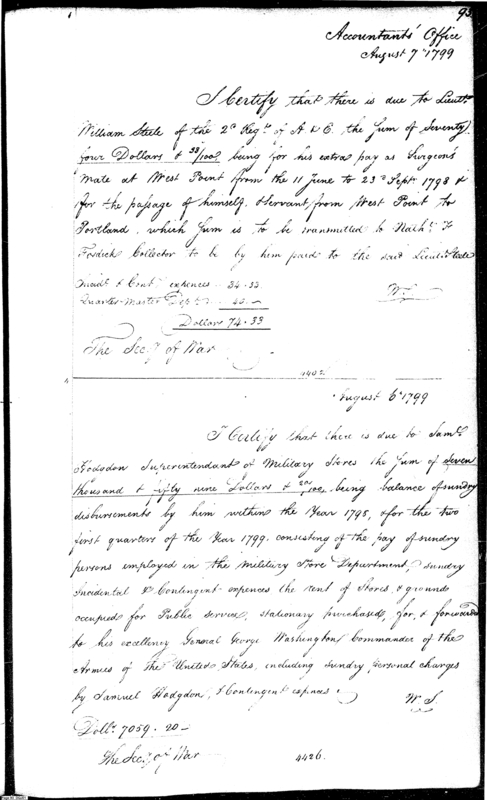 93
Accountants' Office
August 7th 1799
I Certify that there is due to Lieutt.
William Steele of the 2d Regt. of A & E. the Sum of Seventy
four Dollars & 33/100, being for his extra pay as Surgeon's
Mate at West Point from the 11 June to 23d Septr. 1798 &
for the passage of himself & Servant, from West Point to
Portland, which Sum is to be transmitted to Nathl. F
Fosdick Collector to be by him paid to the said Lieutt. Steele
Incidl. & Contt. expences 34.33
Quarter Master Dept.
W. S.
Dollars 74.33
The Secy. of War
August 6th 1799
I Certify that there is due to Saml.
Hodsdon Superintendant of Military Stores the Sum of Seven
thousand & fifty nine Dollars & 20/100, being balance of sundry
disbursements by him within the Year 1798, & for the two
first quarters of the Year 1799. consisting of the pay of sundry
persons employed in the Military Store Department, sundry
Incidental & Contingent expences the rent of Stores, & grounds
occupied for Public service, stationary purchased, for, & forwarded
to his excellency General George Washington Commander of the
Armies of The United States, including sundry personal charges
by Samuel Hodgdon, & Contingent expences.
W. S.
Dolls. 7059.20
The Secy. of War
4426.